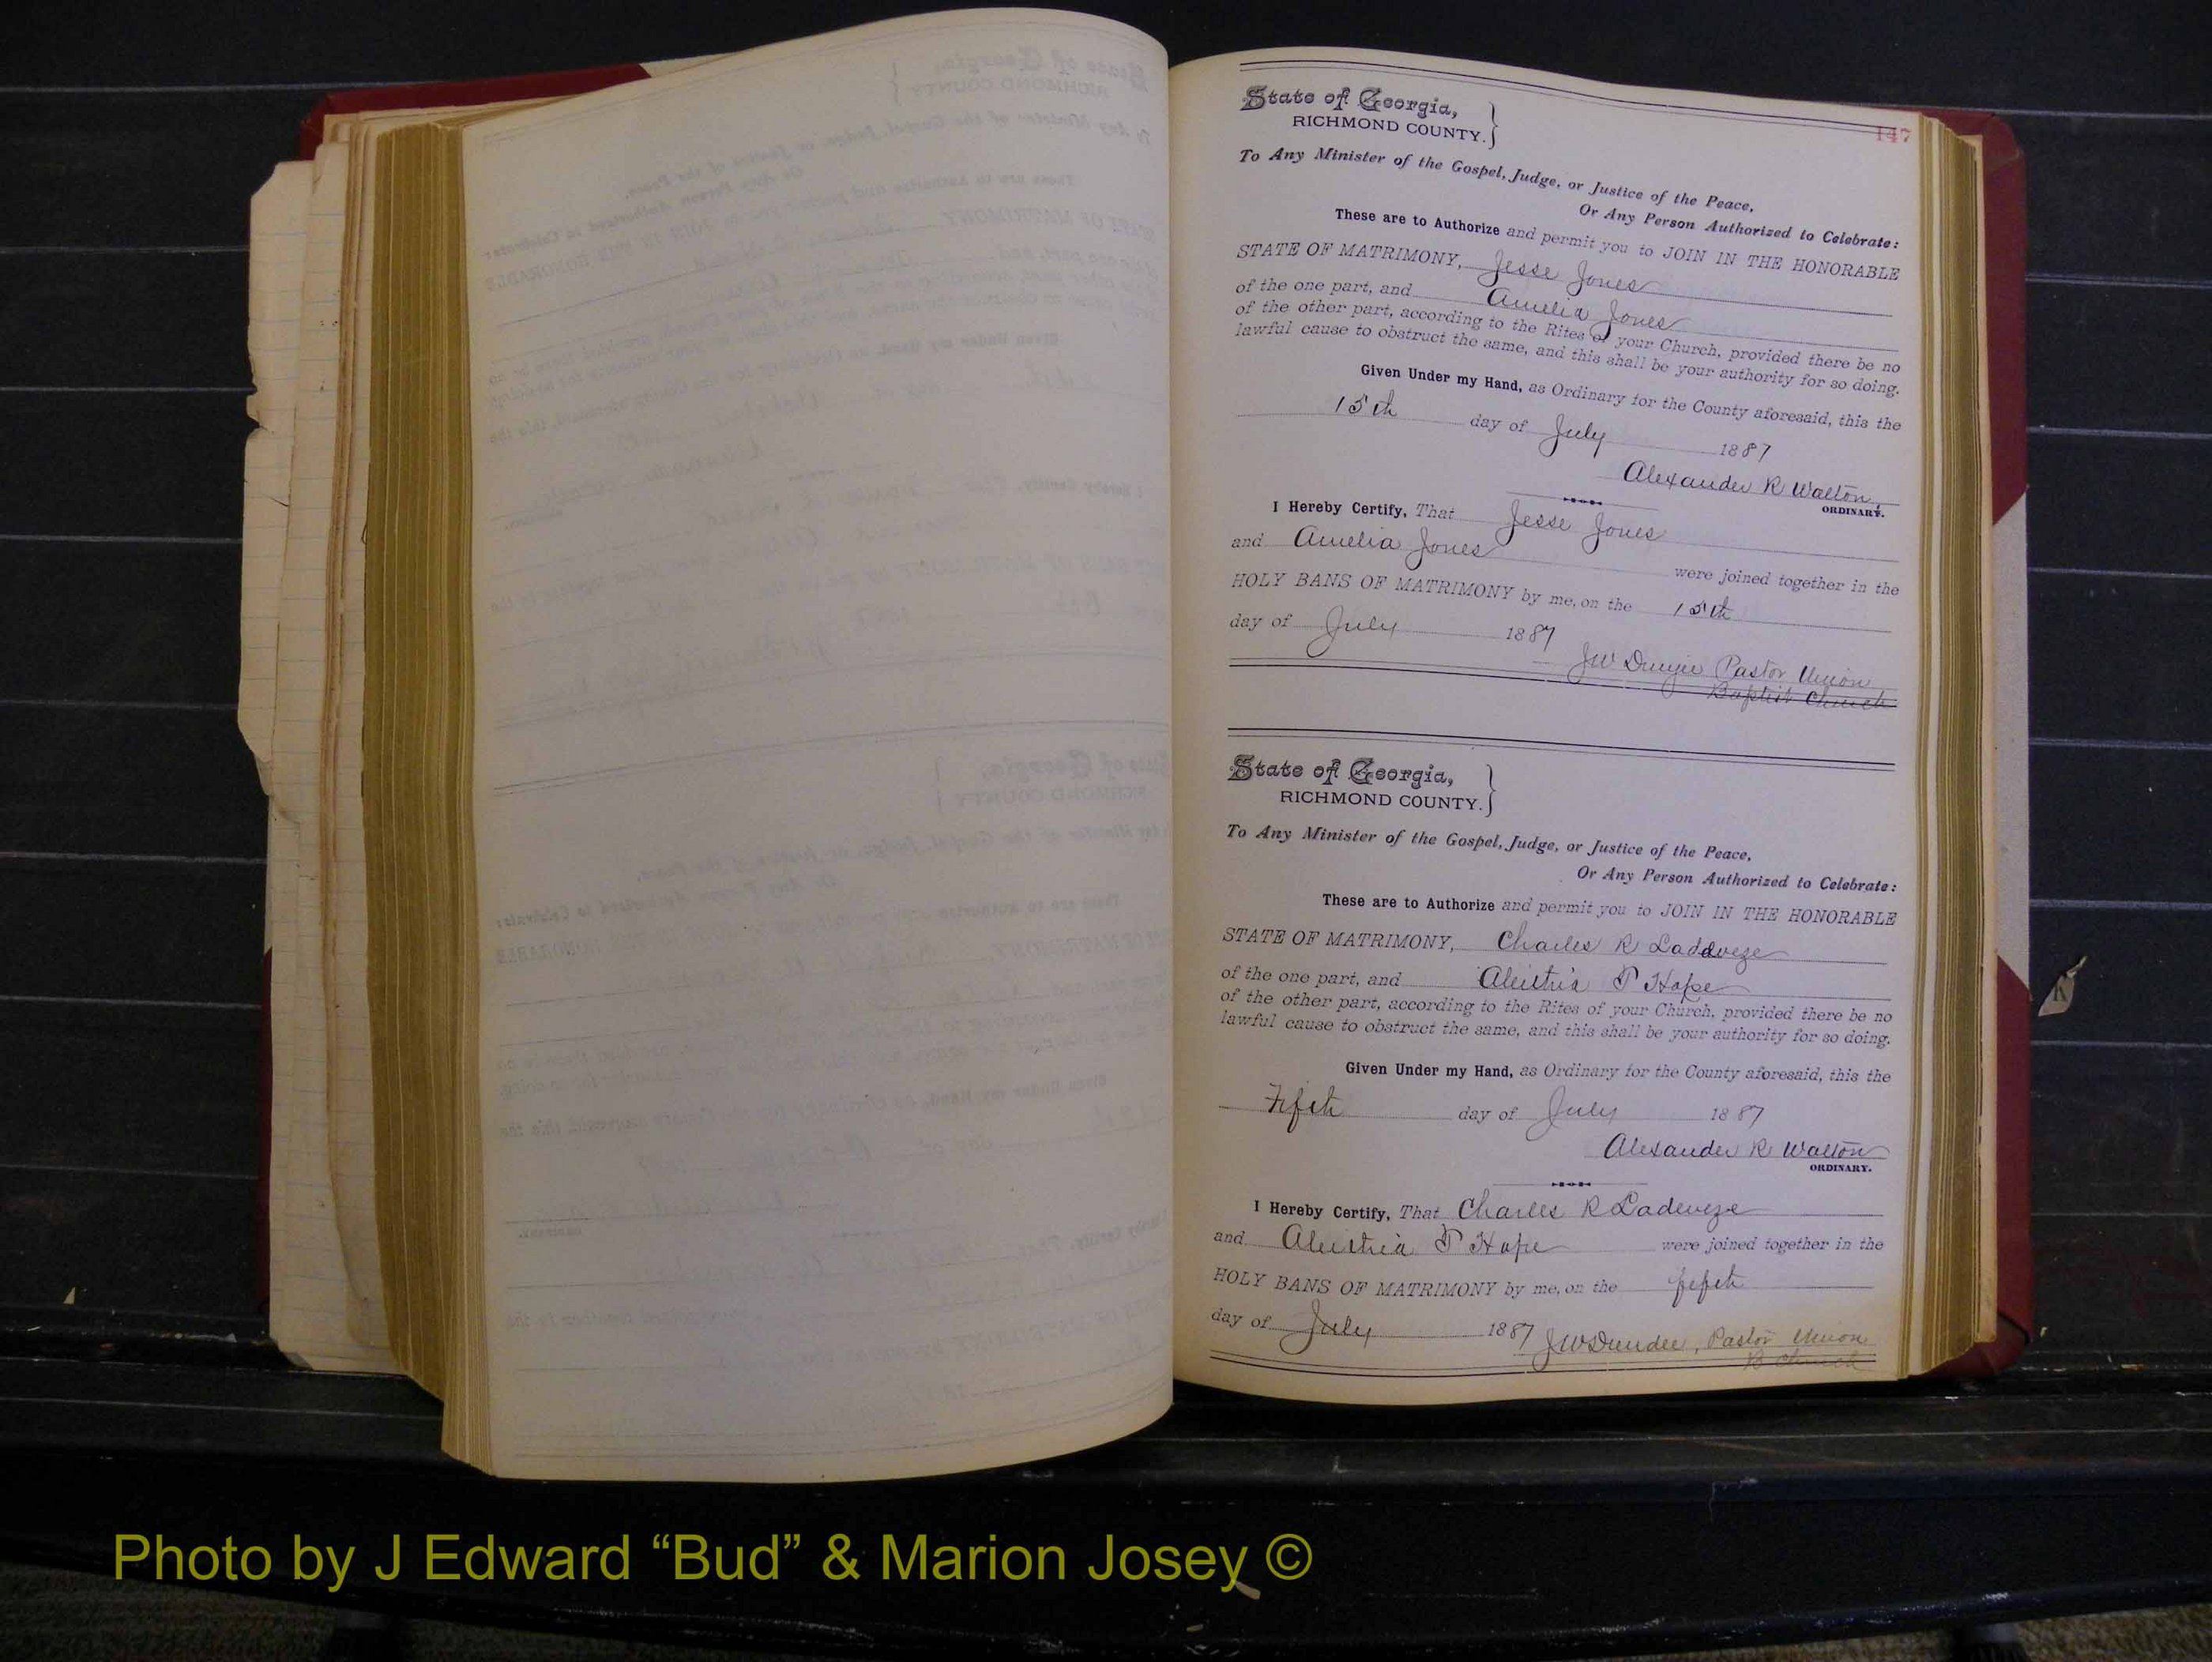 147
State of Georgia,
RICHMOND COUNTY.
To Any Minister of the Gospel, Judge, or Justice of the Peace,
Or Any Person Authorized to Celebrate:
These are to Authorize and permit you to JOIN IN THE HONORABLE
STATE OF MATRIMONY, Jesse Jones
of the one part, and Amelia Jones
of the other part, according to the Rites of your Church, provided there be no
lawful cause to obstruct the same, and this shall be your authority for so doing.
Given Under my Hand, as Ordinary for the County aforesaid, this the
15th day of July 1887
Alexander R Walton,
ORDINARY.
I Hereby Certify, That Jesse Jones
and Amelia Jones were joined together in the
HOLY BANS OF MATRIMONY by me, on the 15th
day of July 1887
JW Pastor Union
Baptist Church
State of Georgia,
RICHMOND COUNTY.
To Any Minister of the Gospel, Judge, or Justice of the Peace,
Or Any Person Authorized to Celebrate:
These are to Authorize and permit you to JOIN IN THE HONORABLE
STATE OF MATRIMONY, Charles R Ladeveze
of the one part, and T Hope
of the other part, according to the Rites of your Church, provided there be no
lawful cause to obstruct the same, and this shall be your authority for so doing.
Given Under my Hand, as Ordinary for the County aforesaid, this the
Fifth day of July 1887
Alexander R Walton
ORDINARY.
I Hereby Certify, That Charles R Ladeveze
and T Hope were joined together in the
HOLY BANS OF MATRIMONY by me, on the fifth
day of July 1887 JW , Pastor Union
B Church
K
Photo by J Edward “Bud” & Marion Josey ©